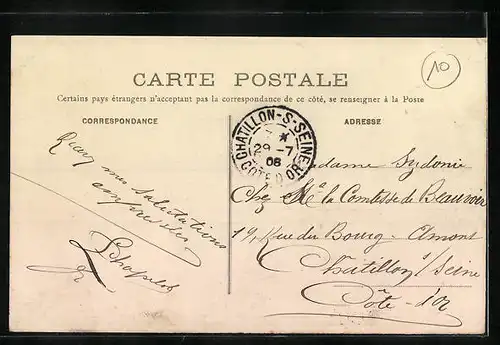 10
CARTE POSTALE
Certains pays étrangers n'acceptant pas la correspondance de ce côté, se renseigner à la Poste
CORRESPONDANCE
ADRESSE
CHATILLON-S-SEINE
29 -7
08
COTE D'OR
mes salutations
Madame Sydonie
Chez Me la Comtesse de Beauvoir
19, Rue du Bourg-Amont
Chatillon s/Seine
Côte-d'Or